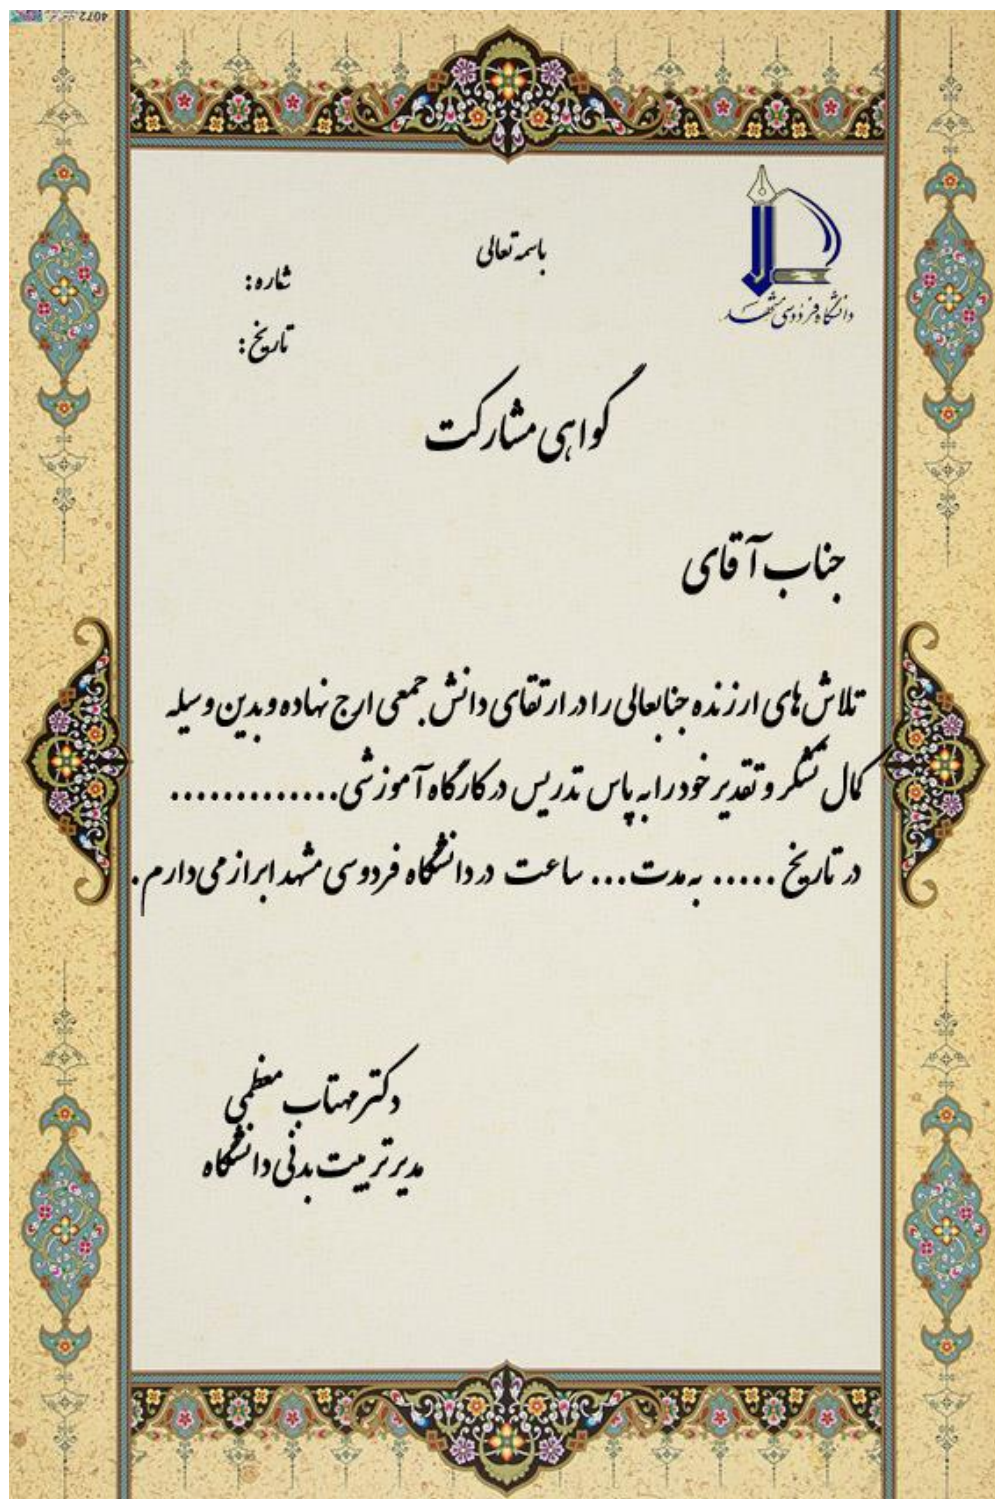 باسمه تعالی
دانشگاه فردوسی مشهد
شماره:
تاریخ:
گواهی مشارکت
جناب آقای
تلاش های ارزنده جنابعالی را در ارتقای دانش جمعی ارج نهاده و بدین وسیله
کمال تشکر و تقدیر خود را به پاس تدریس در کارگاه آموزشی.............
در تاریخ ..... به مدت... ساعت در دانشگاه فردوسی مشهد ابراز می دارم.
دکتر مهتاب معظمی
مدیر تربیت بدنی دانشگاه
4072